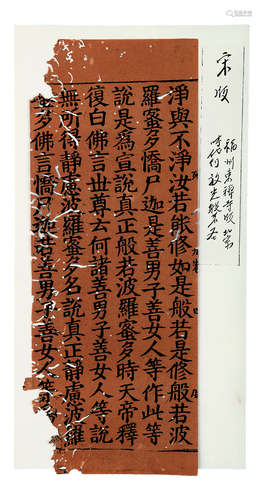 宋版
福州東禅寺版
淨與不淨汝若能修如是般若是修般若波
羅蜜多憍尸迦是善男子善女人等作此等
說是為宣說真正般若波羅蜜多時天帝釋
復白佛言世尊云何諸善男子善女人等說
無可得靜慮波羅蜜多名說真正靜慮波羅
蜜多佛言憍尸迦若善男子善女人等